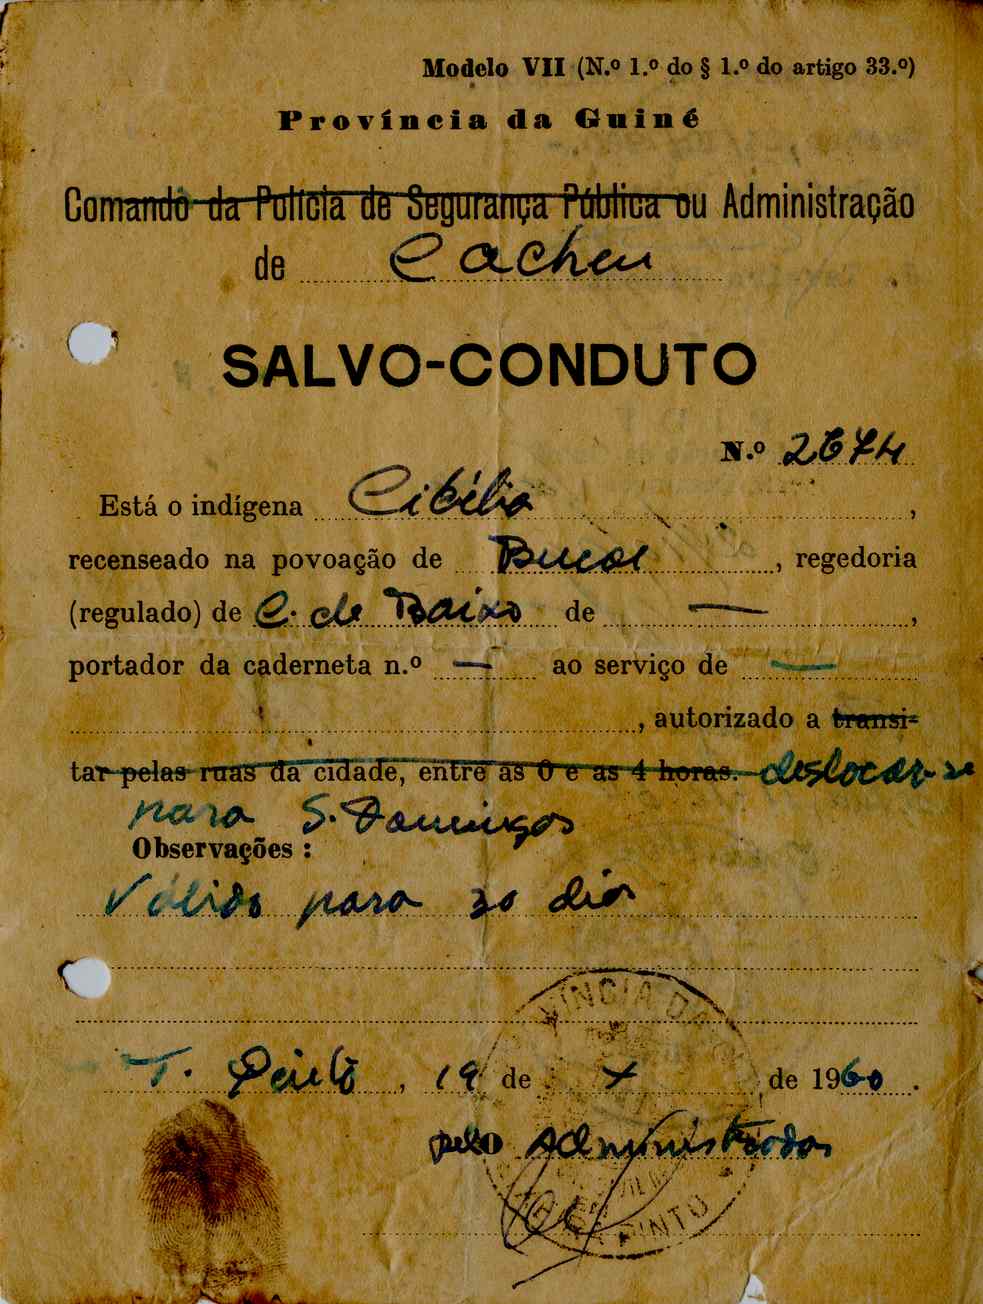 Modelo VII (N.º 1.º do § 1.º do artigo 33.º)
Província da Guiné
Comando da Polícia de Segurança Pública ou Administração
de Cacheu
SALVO-CONDUTO
N.º 2674
Está o indígena Cibélia,
recenseado na povoação de Bucol, regedoria
(regulado) de C. de Baixo de —,
portador da caderneta n.º — ao serviço de —
, autorizado a transi-
tar pelas ruas da cidade, entre as 0 e as 4 horas. deslocar-se
para S. Domingos
Observações :
Válido para 30 dias
T. Pinto, 19 de X de 1960.
pelo Administrador
VÍNCIA DA
PINTO